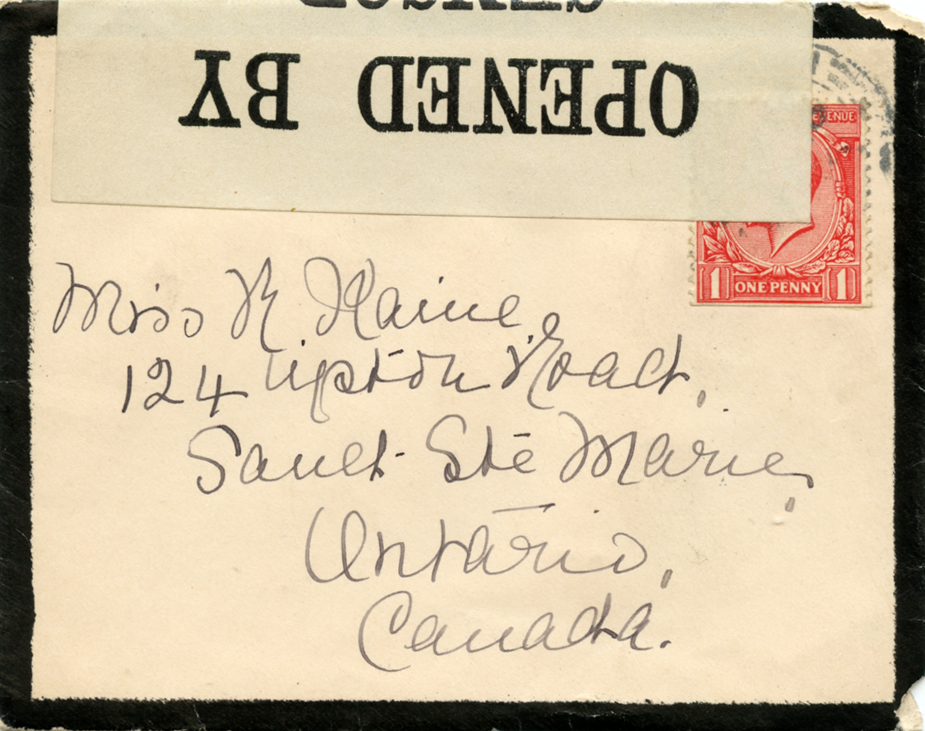 OPENED BY
REVENUE
1 ONE PENNY 1
Miss R Haine
124 Upton Road,
Sault Ste Marie,
Ontario,
Canada.